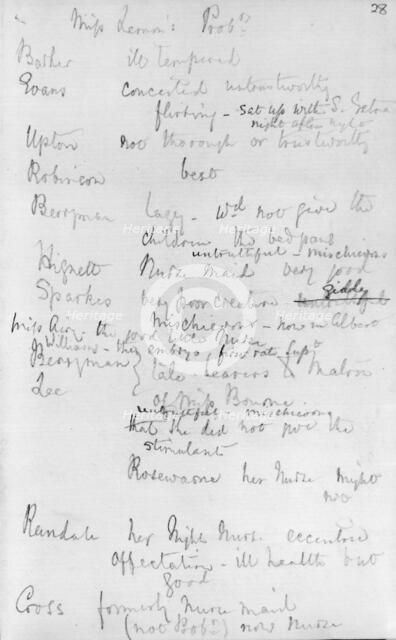 28
Miss Lennon's Probrs
Barker ill tempered
Evans conceited untrustworthy
flirting - sat up with S.
night after night
Upton not thorough or trustworthy
Robinson best
Berryman lazy - wd not give the
children the bed pans
untruthful - mischievous
Hignett Nurse Maid very good
Sparkes very poor creature giddy
mischievous - now in Albert
Miss the good little Nurse
Williams - they first rate Supt
Berryman tale-bearers to Matron
Lee of Miss Bourne
untruthful mischievous
that she did not give the
stimulants
Rosewarne her Nurse Night
no
Randale her Night Nurse eccentric
affectation - ill health but
good
Cross formerly Nurse maid
(not Probr) now Nurse
Heritage